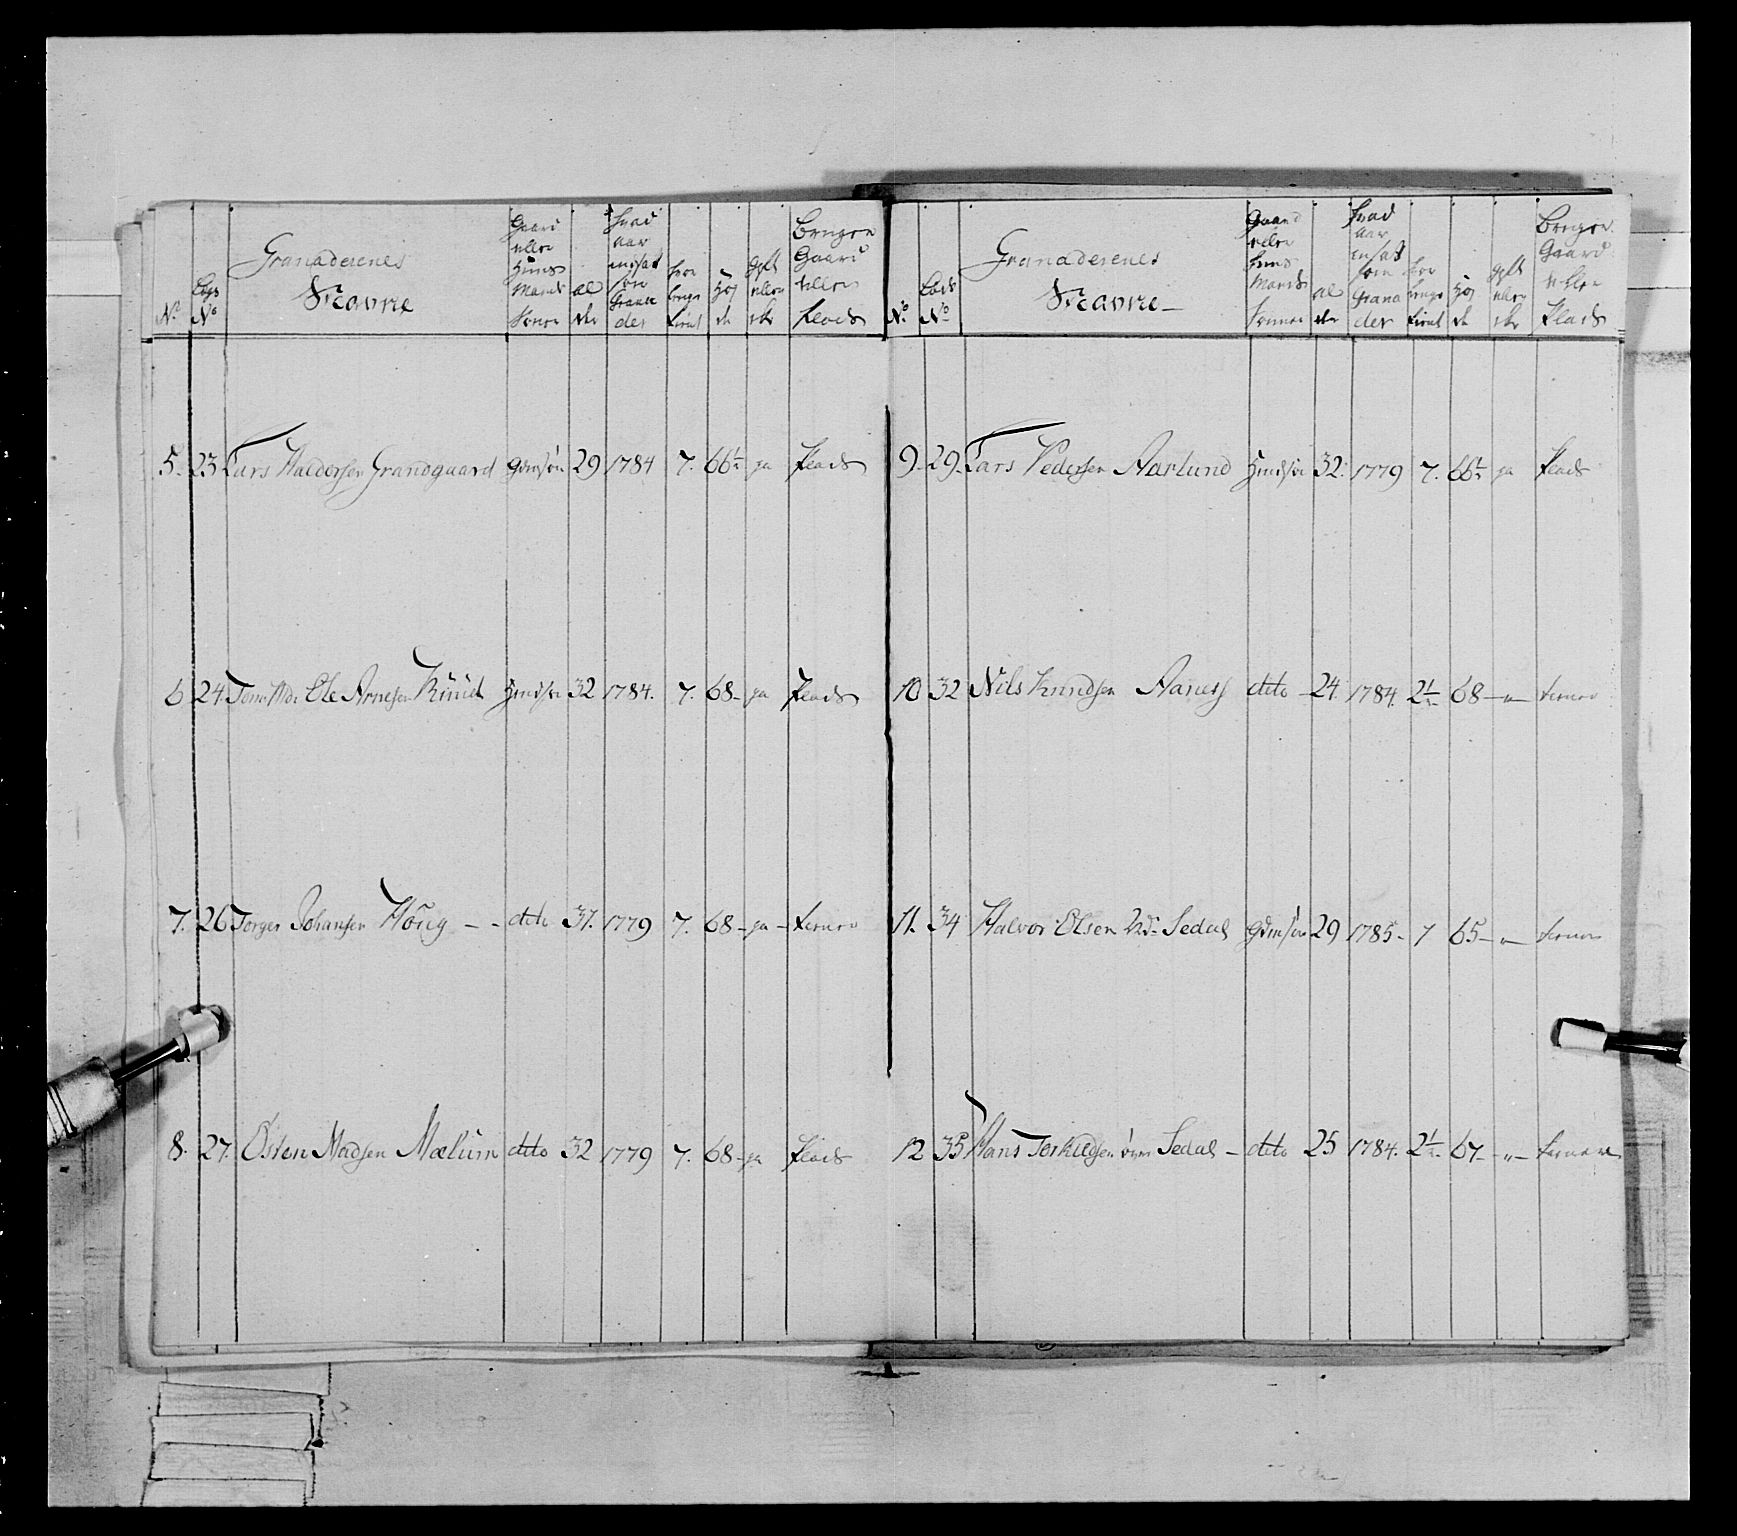 No
Lægs No
Granaderenes Navne
Gaard eller Huus Mands Sönner
al der
Hvad aar ansat som Grana der
Høj de
gift eller ikke
Bruger Gaard eller Plads
5. 23 Lars Haldersen Grandgaard Gdmsön 29 1784 7. 66½ ja Plads
6 24. Ole Arnesen Hmdsön 32 1784. 7. 68 – ja Plads
7. 26 Torger Johansen Houg – – dito 31. 1779 7. 68 – ja –
8. 27. Østen Madsen Mælum dito 32 1779 7. 68 – ja Plads
No
Lægs No
Granaderenes Navne –
Gaard eller Huus Mands Sönner
al der
Hvad aar ansat som Grana der
Høj de
gift eller ikke
Bruger Gaard eller Plads
9. 29. Lars Pedersen Aarlund Hmdsön 32. 1779 7. 66½ ja Plads
10 32 Nils Knudsen Aaness dito 24. 1784. 2½ 68 – " –
11. 34 Halvor Olsen Sedal Gdmsön 29 1785 – 7 65 – " –
12 35 Hans Torkildsen Sedal – dito 25 1784. 2½ 67 – " –